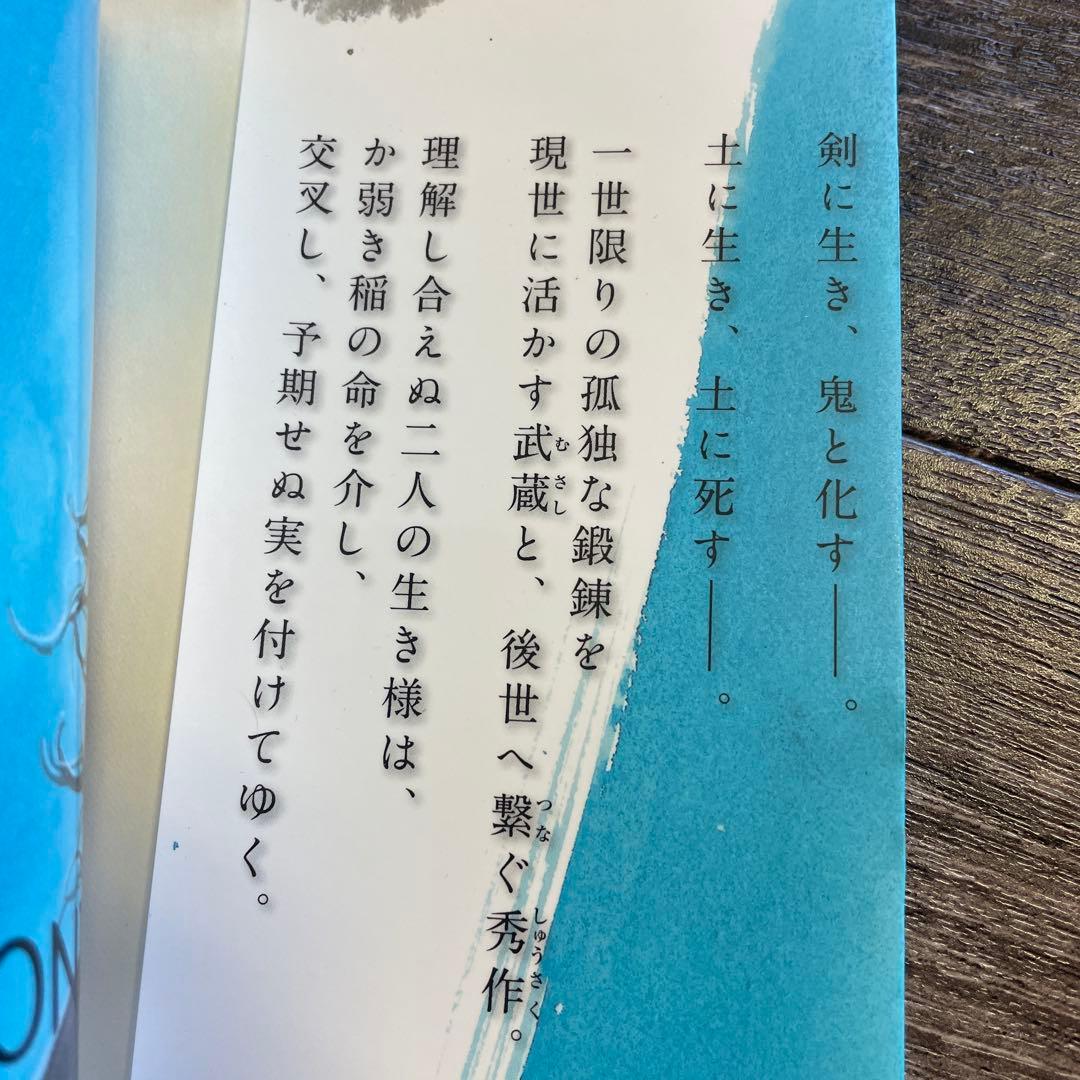 剣に生き、鬼と化す――。
土に生き、土に死す――。
一世限りの孤独な鍛錬を
現世に活かす武蔵と、後世へ繋ぐ秀作。
むさし
つな
しゅうさく
理解し合えぬ二人の生き様は、
か弱き稲の命を介し、
交叉し、予期せぬ実を付けてゆく。
ON